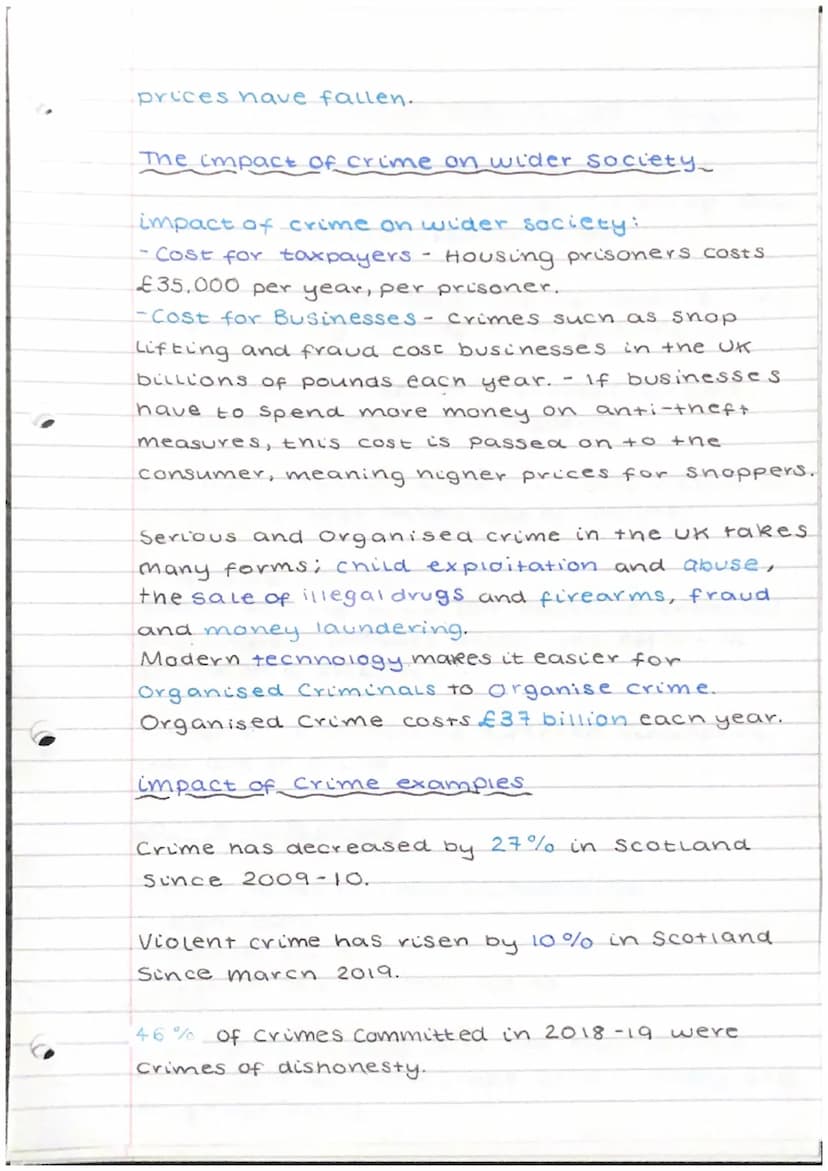 prices have fallen.
The impact of crime on wider society
impact of crime on wider society:
- Cost for taxpayers - Housing prisoners costs
£35,000 per year, per prisoner.
- Cost for Businesses - crimes such as shop
lifting and fraud cost businesses in the UK
billions of pounds each year. - If businesses
have to spend more money on anti-theft
measures, this cost is passed on to the
consumer, meaning higher prices for shoppers.
Serious and organised crime in the UK takes
many forms; child exploitation and abuse,
the sale of illegal drugs and firearms, fraud
and money laundering.
Modern technology makes it easier for
Organised Criminals to organise crime.
Organised Crime costs £37 billion each year.
impact of crime examples
Crime has decreased by 27% in Scotland
Since 2009-10.
Violent crime has risen by 10% in Scotland
Since march 2019.
46% of crimes committed in 2018-19 were
crimes of dishonesty.